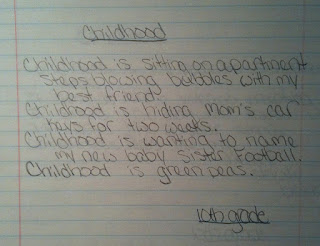 Childhood
Childhood is sitting on apartment
steps blowing bubbles with my
best friend.
Childhood is hiding Mom's car
keys for two weeks.
Childhood is wanting to name
my new baby sister Football.
Childhood is green peas.
10th grade